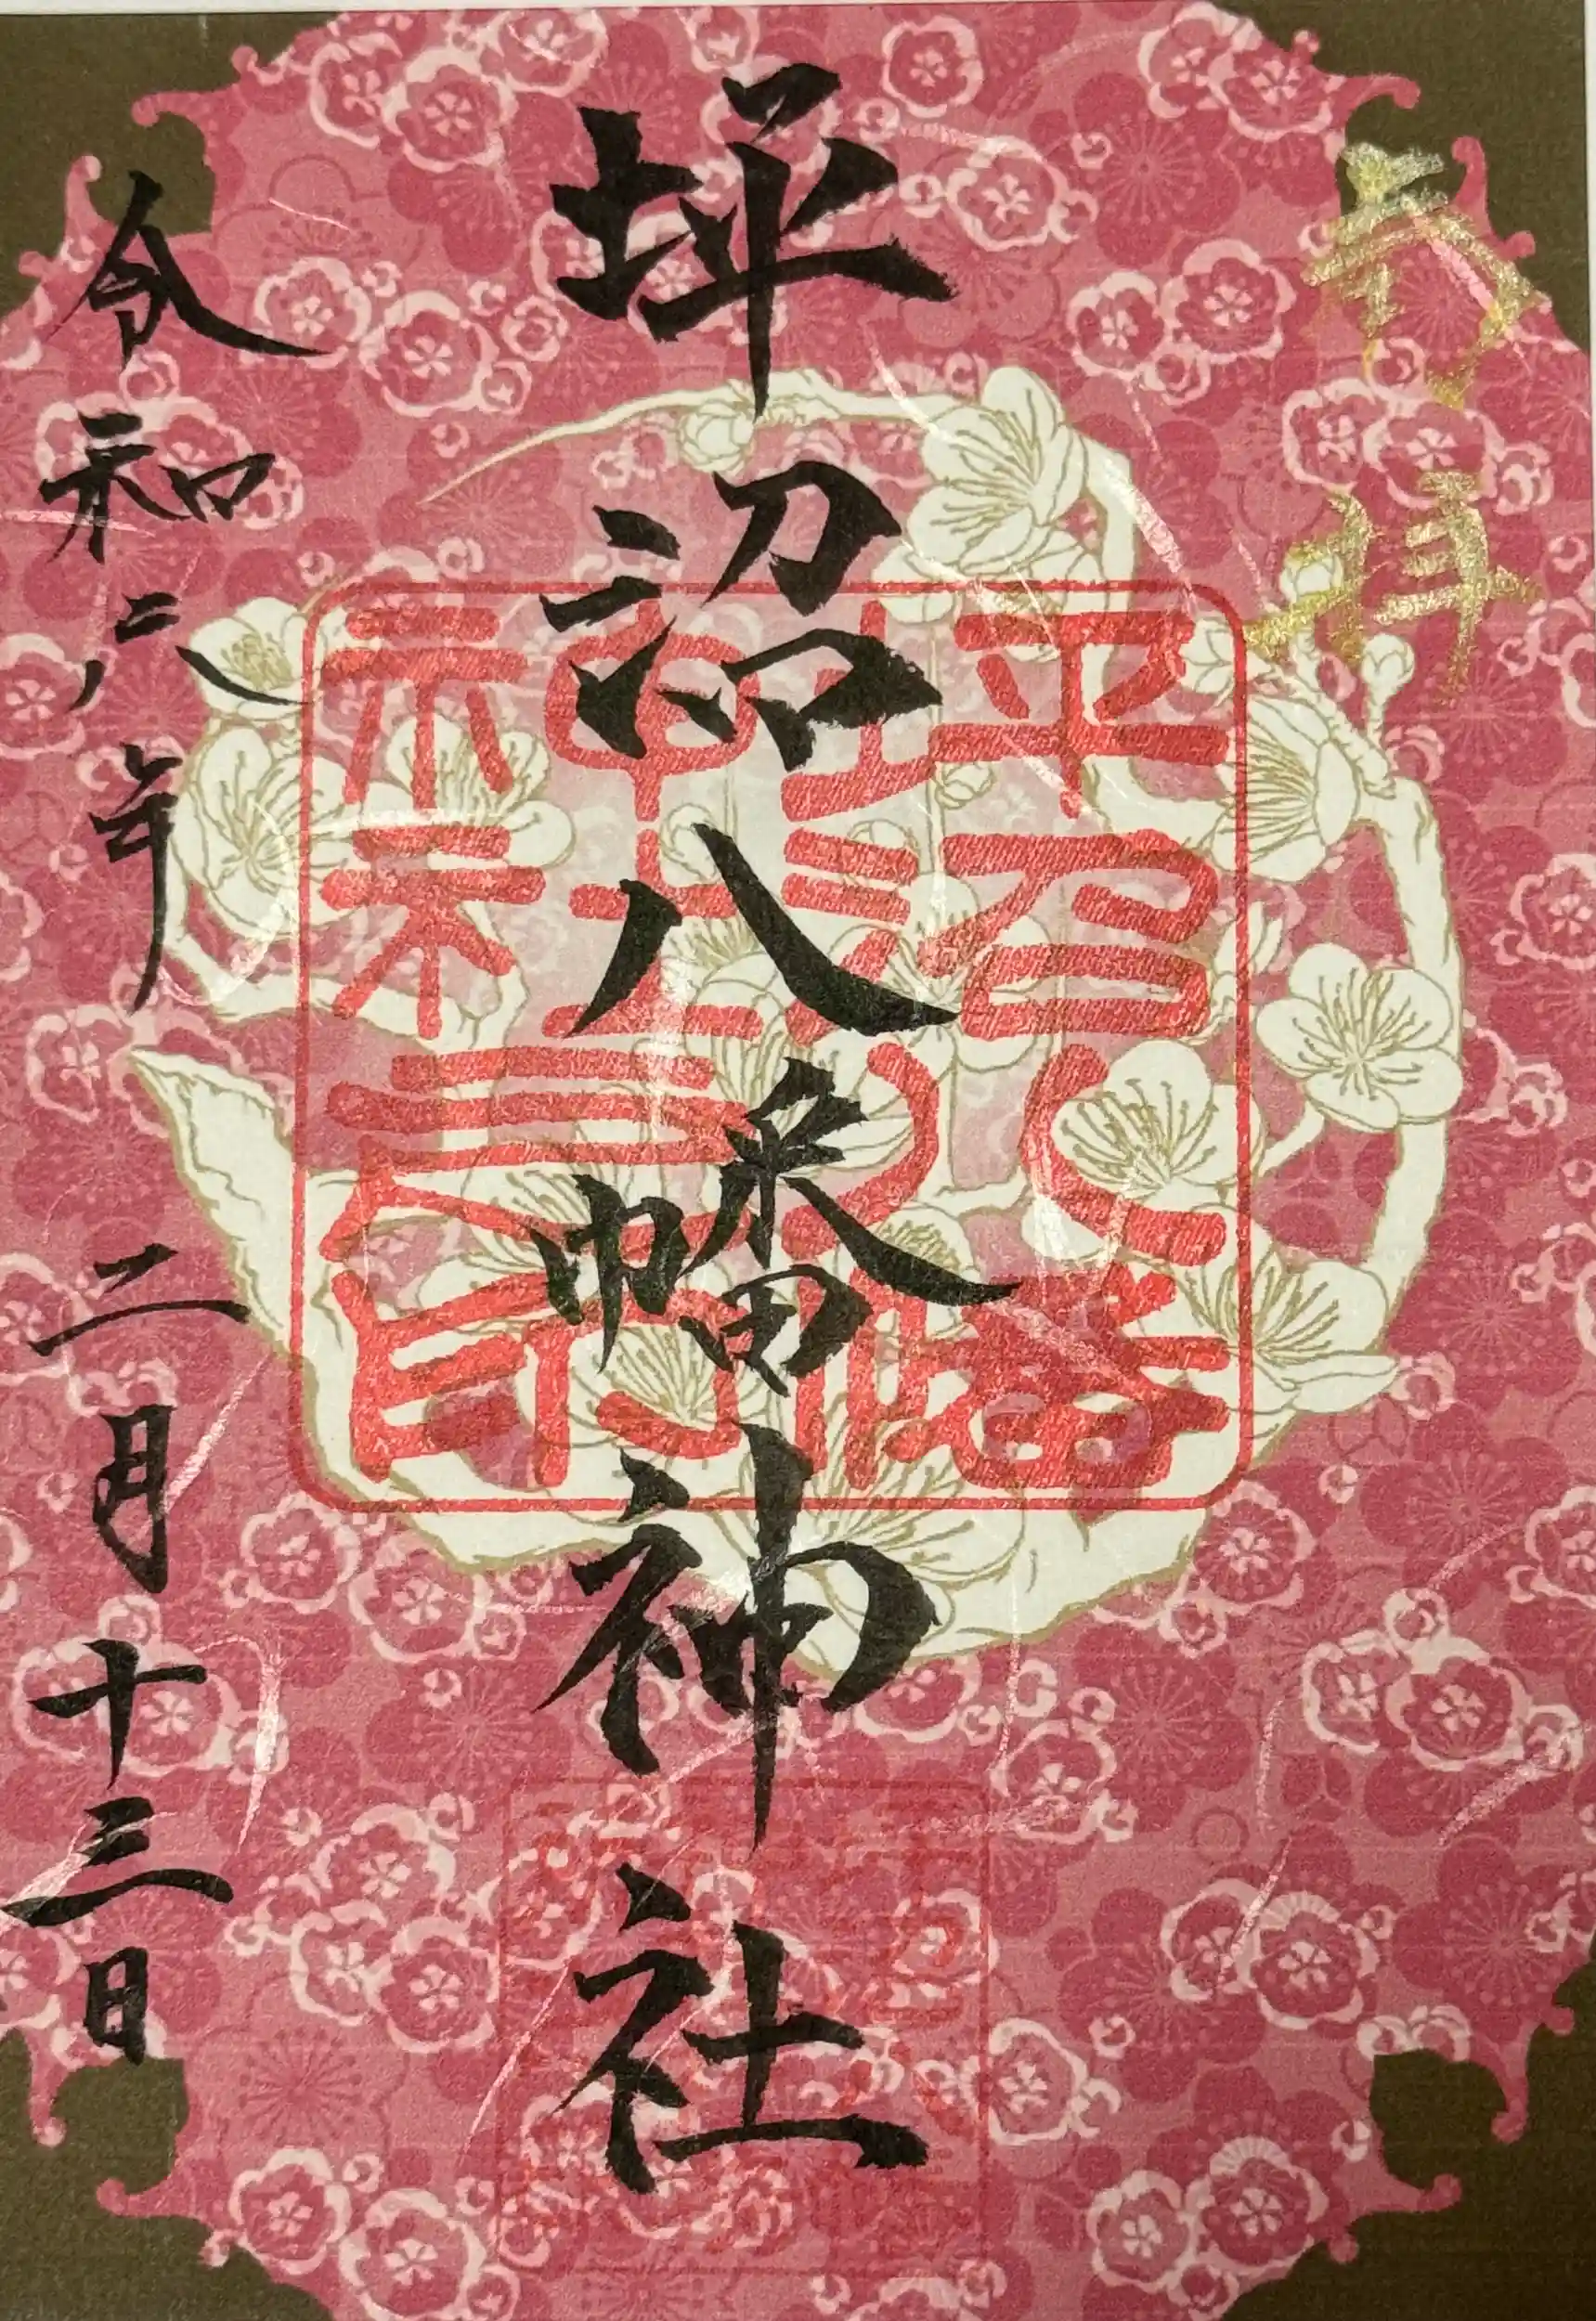 奉拝
坪沼八幡神社
坪沼八幡神社長印
令和六年 二月 十三日